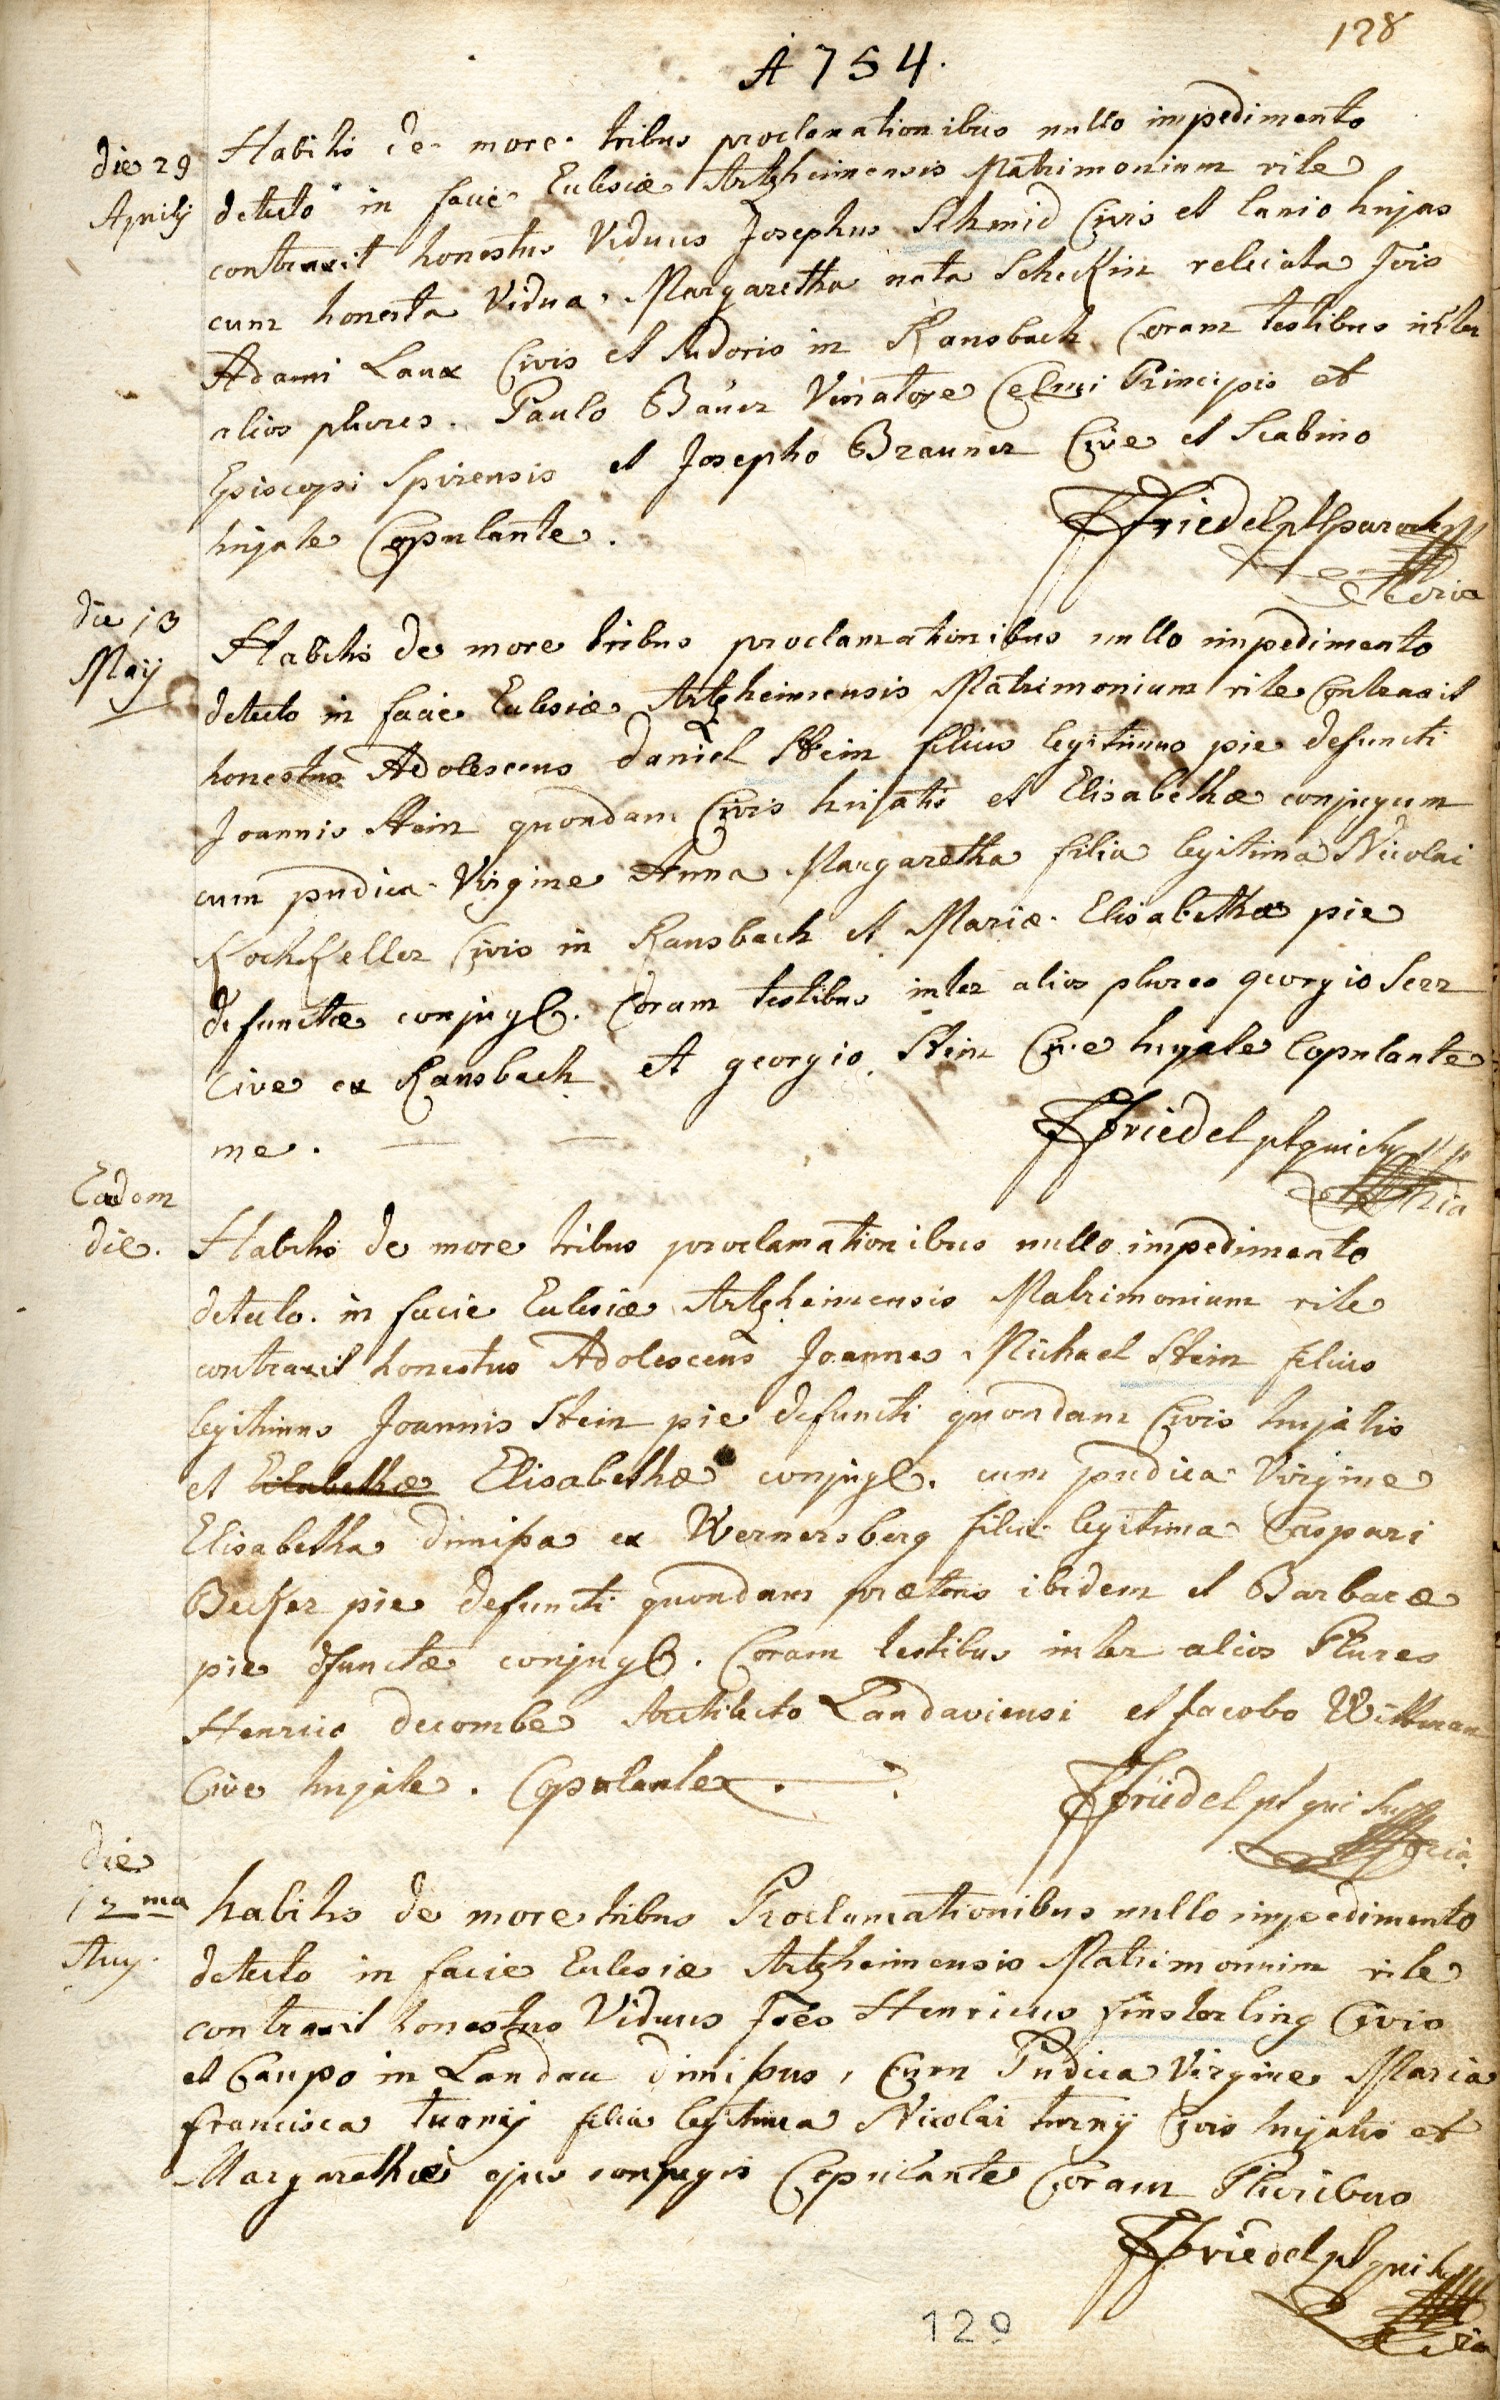 128
A 754.
die 29 Aprilij
Habitis de more tribus proclamationibus nullo impedimento
detecto in facie Eclesiæ Artzheimensis Matrimonium rite
contraxit honestus Viduus Josephus Schmid Civis et Lanio hujas
cum honesta Vidua Margaretha nata Scheckin relicta Jois
Adami Laux Civis et sudoris in Ransbach Coram testibus inter
alios plures. Paulo Bauer Venatore Celsmi Principis et
Episcopi Spirensis et Josepho Brauner Cive et Scabino
hujate Copulante.
Friedel pt parocho
die 13 May
Habitis de more tribus proclamationibus nullo impedimento
detecto in facie Eclesiæ Artzheimensis Matrimonium rite Contraxit
honestus Adolescens Daniel Stein filius legitimus pie defuncti
Joannis Stein quondam Civis hujatis et Elisabethæ conjugum
cum pudica Virgine Anna Margaretha filia legitima Nicolai
Kochkeller Civis in Ransbach et Mariæ Elisabethæ pie
defunctæ conjug. Coram testibus inter alios plures georgio Serr
Cive ex Ransbach et georgio Stein Cive hujate Copulante
me.
Friedel pt qui supr
Eadem die.
Habitis de more tribus proclamationibus nullo impedimento
detecto. in facie Eclesiæ Artzheimensis Matrimonium rite
contraxit honestus Adolescens Joannes Michael Stein filius
legitimus Joannis Stein pie defuncti quondam Civis hujatis
et Elisabethæ Elisabethæ conjug. cum pudica Virgine
Elisabetha dimissa ex Wernersberg filia legitima Caspari
Becker pie defuncti quondam prætoris ibidem et Barbaræ
pie dfunctæ conjug. Coram testibus inter alios Plures
Henrico decombe Architecto Landaviensi et Jacobo Wittman
Cive hujate. Copulante.
Friedel pt qui supr
die 12ma Aug.
habitis de more tribus Proclamationibus nullo impedimento
detecto in facie Eclesiæ Artzheimensis Matrimonium rite
contraxit honestus Viduus Joes Henricus finsterling Civis
et Caupo in Landau dimissus, Cum Pudica Virgine Maria
francisca tuorny filia legitima Nicolai turny Civis hujatis et
Margarethæ ejus conjugis Copulante Coram Pluribus
Friedel pt qui supr
129